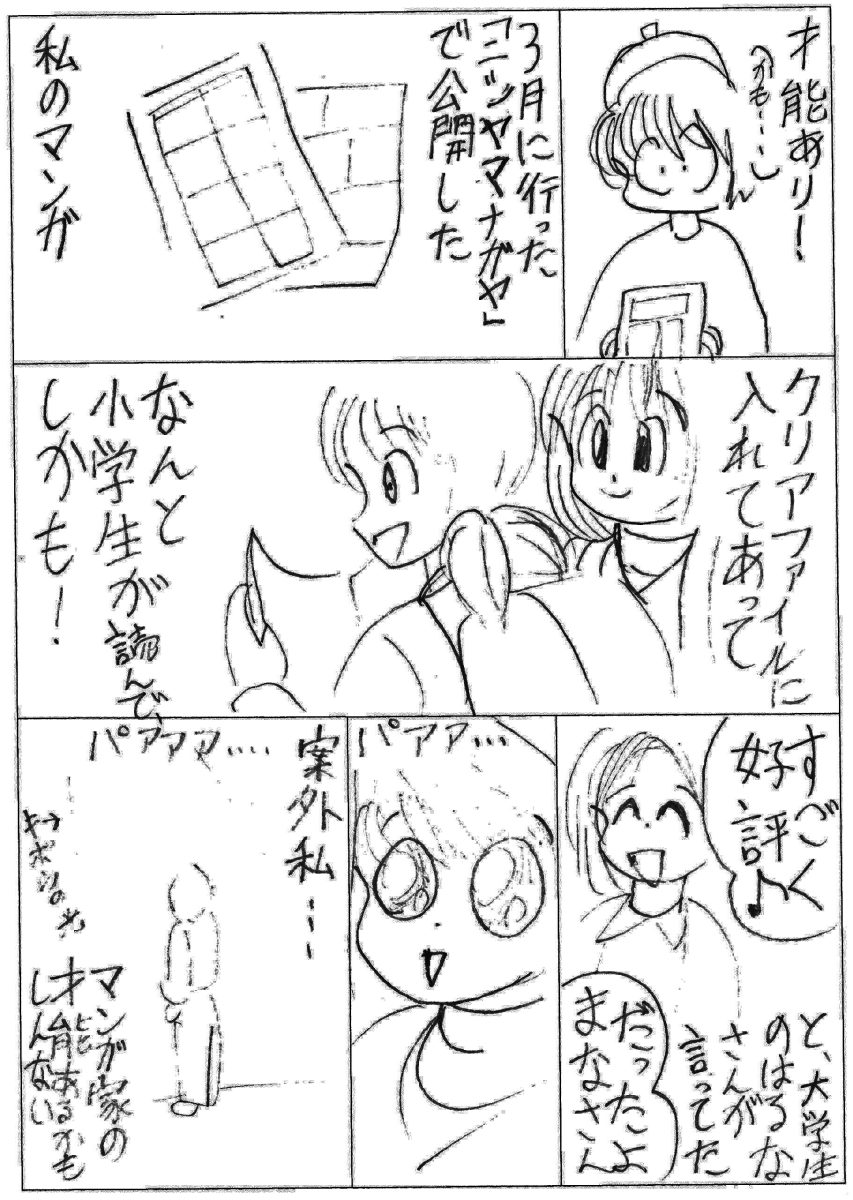 才能あり!
(かも…)
3月に行った
「コミジャヤマナガヤ」
で公開した
私のマンガ
クリアファイルに
入れてあって
なんと
小学生が読んで、
しかも!
すごく
好評♪
だったよ
まなさん
と、大学生
のはるな
さんが
言ってた
パァァ…
案外私…
パァァァ…
マンガ家の
才能あるかも
しんない